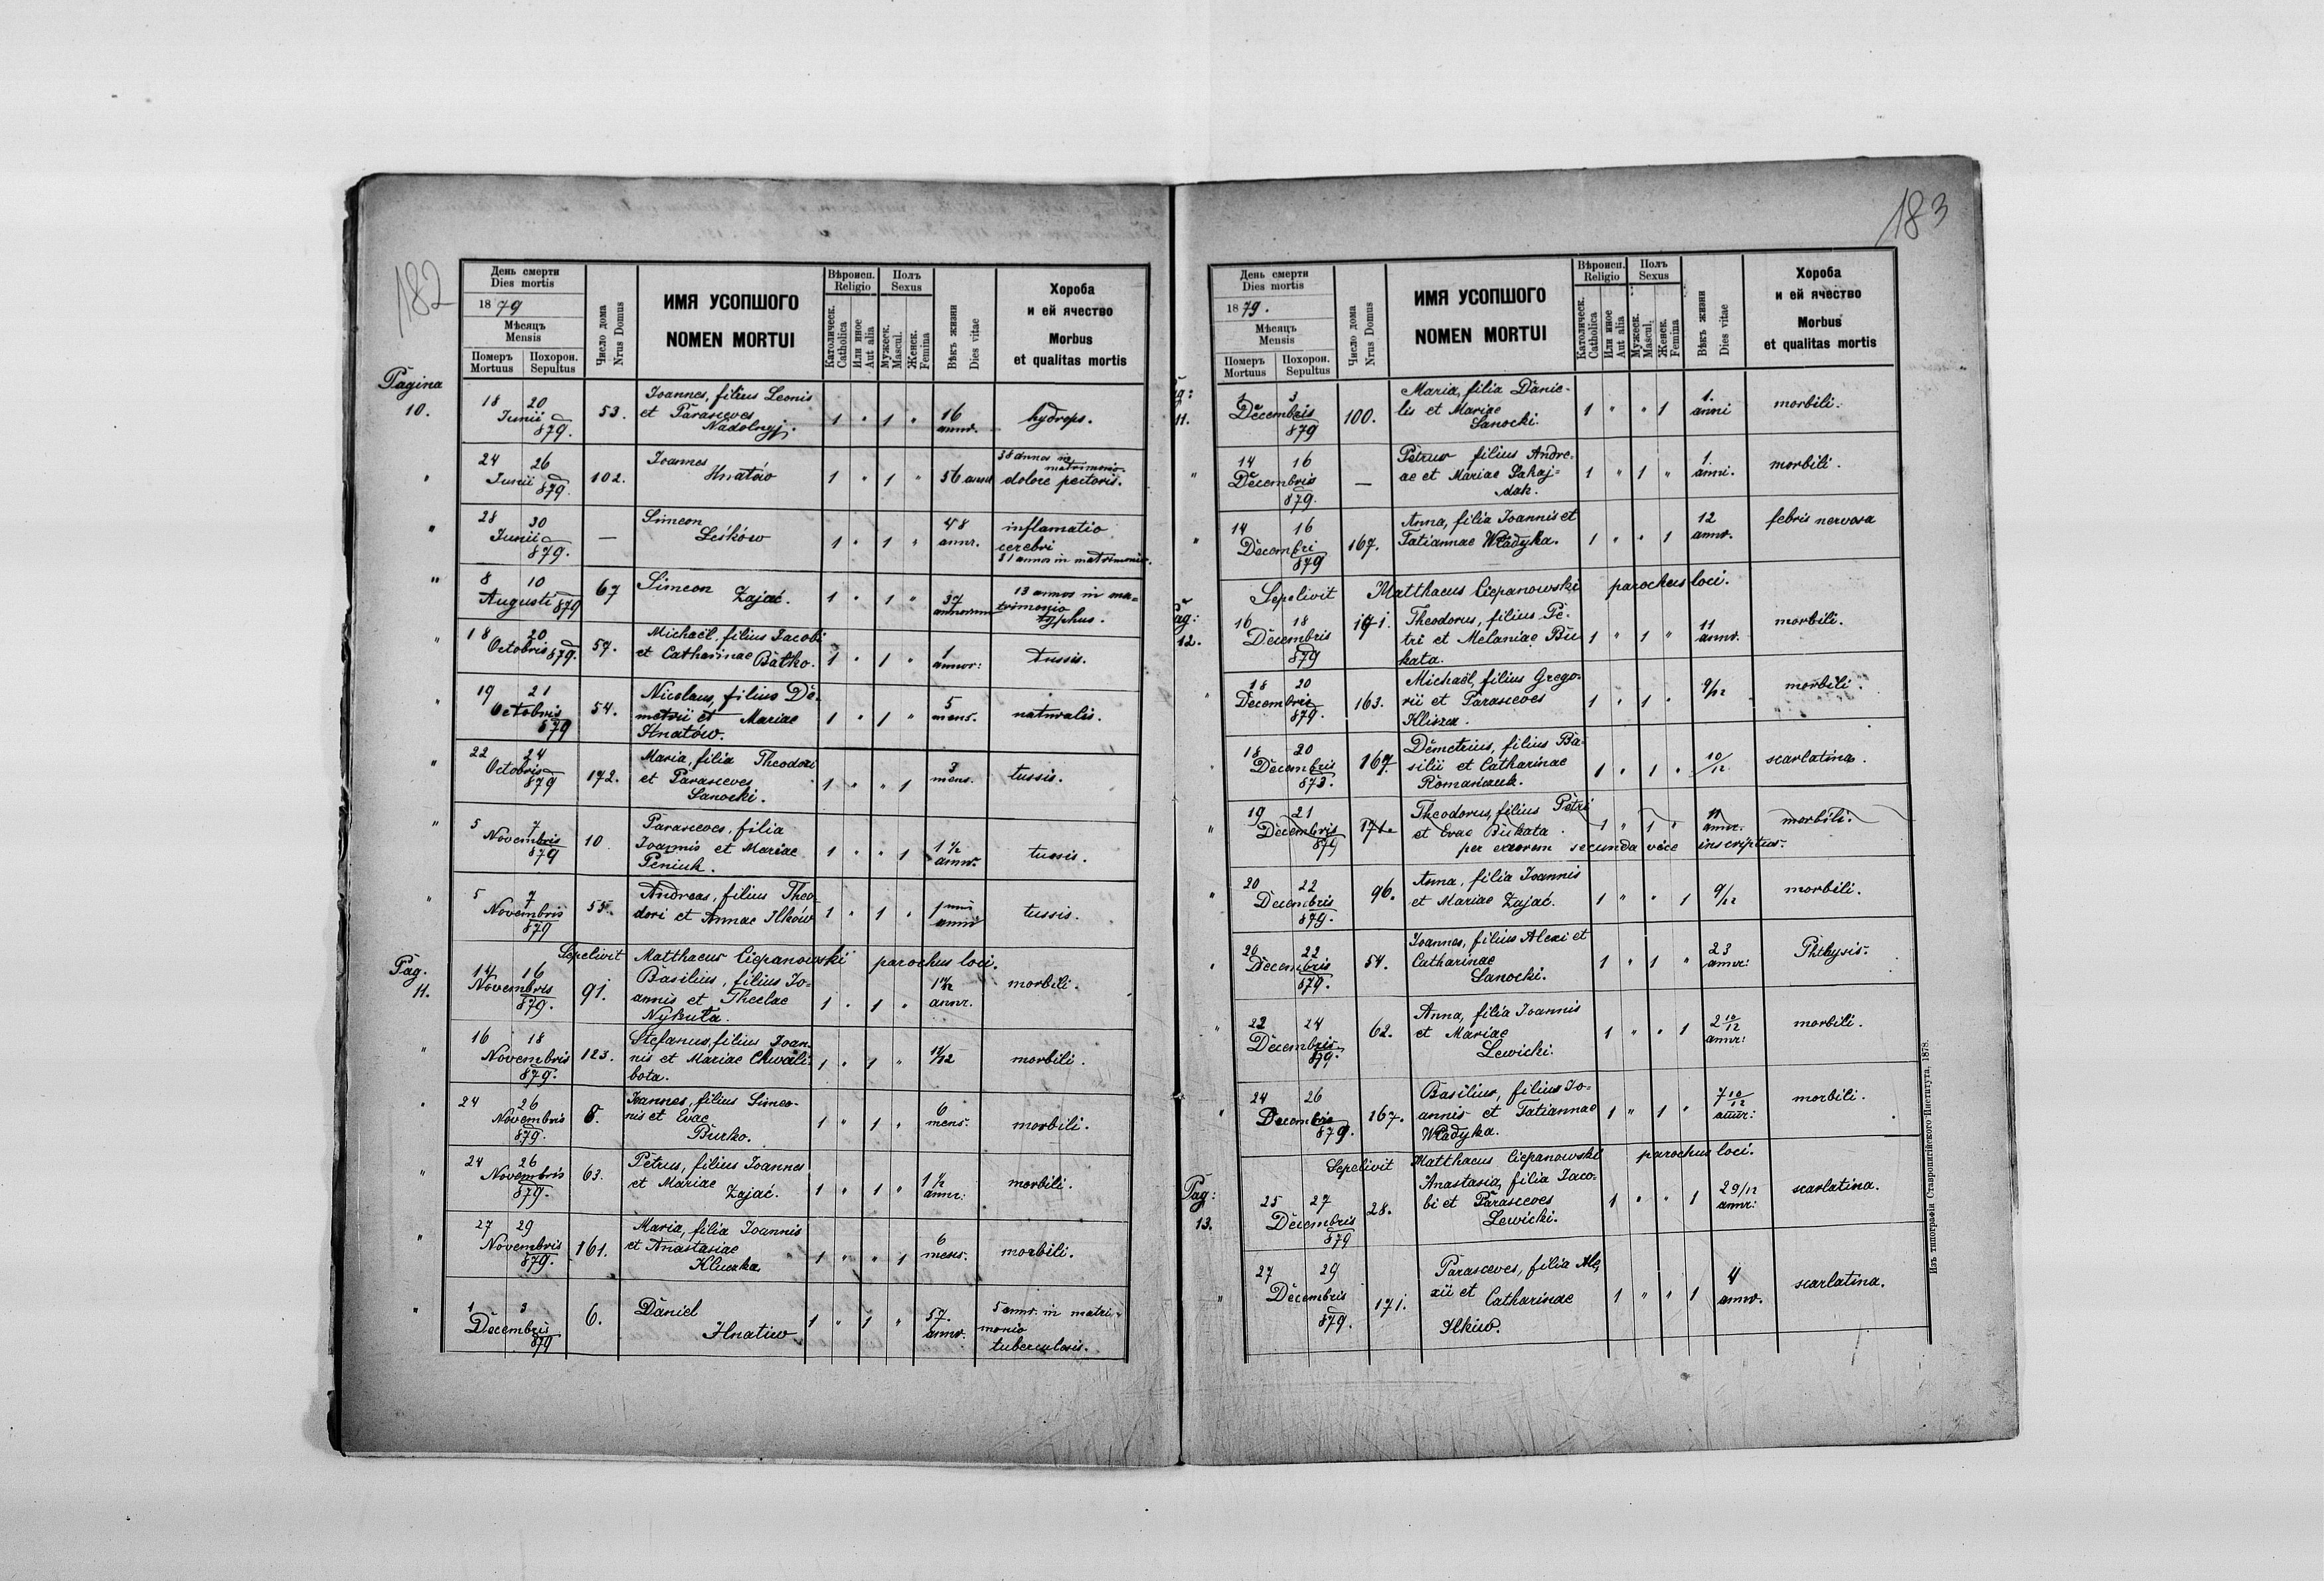 182
День смерти
Dies mortis
1879
Мѣсяцъ
Mensis
Померъ Похорон.
Mortuus Sepultus
Число дома
Nrus Domus
ИМЯ УСОПШОГО
NOMEN MORTUI
Вѣроисп.
Religio
Католическ.
Catholica
Или иное
Aut alia
Полъ
Sexus
Мужеск.
Mascul.
Женск.
Femina
Вѣкъ жизни
Dies vitae
Хороба
и ей ячество
Morbus
et qualitas mortis
Pagina
10.
18 20 Junii 879. 53. Joannes, filius Leonis
et Parasceves
Nadolnyj. 1 " 1 " 16 annor. hydrops.
" 24 26 Junii 879. 102. Joannes
Hnatów 1 " 1 " 56 annor 38 annos in
matrimonio
dolore pectoris.
" 28 30 Junii 879. — Simeon
Leśków 1 " 1 " 48 annr. inflamatio
cerebri
31 annos in matrimonio.
" 8 10 Augusti 879 67 Simeon Zając. 1 " 1 " 37 annorum 13 annos in ma-
trimonio
typhus.
" 18 20 Octobris 879. 57. Michaël, filius Jacobi
et Catharinae Batko. 1 " 1 " 1 annor: tussis.
" 19 21 Octobris 879 54. Nicolaus, filius De-
metrii et Mariae
Hnatów. 1 " 1 " 5 mens. naturalis.
" 22 24 Octobris 879 172. Maria, filia Theodori
et Parasceves
Sanocki. 1 " " 1 3 mens. tussis.
" 5 7 Novembris 879 10 Parasceves, filia
Joannis et Mariae
Peniuk. 1 " " 1 1 1/2 annor. tussis.
" 5 7 Novembris 879 55. Andreas, filius Theo-
dori et Annae Ilków 1 " 1 " 1 anni tussis.
Sepelivit Matthaeus Ciepanowski parochus loci.
Pag.
11.
14 16 Novembris 879. 91. Basilius, filius Jo-
annis et Theclae
Nykuta. 1 " 1 " annr. morbili.
" 16 18 Novembris 879. 123. Stefanus, filius Joan-
nis et Mariae Chwali-
bota. 1 " 1 " 11/12 morbili.
" 24 26 Novembris 879. 8. Joannes, filius Simeo-
nis et Evae
Burko. 1 " 1 " 6 mens. morbili.
" 24 26 Novembris 879. 63. Petrus, filius Joannes
et Mariae Zając. 1 " 1 " 1 1/2 annr: morbili.
" 27 29 Novembris 879. 161. Maria, filia Joannis
et Anastasiae
Kluczka 1 " " 1 6 mens. morbili.
" 1 3 Decembris 879 6. Daniel
Hnatiw 1 " 1 " 57. annor. 5 annr. in matri-
monio
tuberculosis.
183
День смерти
Dies mortis
1879.
Мѣсяцъ
Mensis
Померъ Похорон.
Mortuus Sepultus
Число дома
Nrus Domus
ИМЯ УСОПШОГО
NOMEN MORTUI
Вѣроисп.
Religio
Католическ.
Catholica
Или иное
Aut alia
Полъ
Sexus
Мужеск.
Mascul.
Женск.
Femina
Вѣкъ жизни
Dies vitae
Хороба
и ей ячество
Morbus
et qualitas mortis
ag:
11.
1 3 Decembris 879 100. Maria, filia Danie-
lis et Mariae
Sanocki. 1 " " 1 1. anni morbili.
" 14 16 Decembris 879. — Petrus filius Andre-
ae et Mariae Sahaj-
dak. 1 " 1 " 1. anni. morbili.
" 14 16 Decembri 879 167. Anna, filia Joannis et
Tatiannae Władyka. 1 " " 1 12 annor. febris nervosa
Sepelivit Matthaeus Ciepanowski parochus loci.
ag:
12.
16 18 Decembris 879 171. Theodorus, filius Pe-
tri et Melaniae Bu
kata. 1 " 1 " 11 annor. morbili.
" 18 20 Decembris 879. 163. Michaël, filius Grego-
rii et Parasceves
Klisza. 1 " 1 " 9/12 morbili.
" 18 20 Decembris 873. 167. Demetrius, filius Ba-
silii et Catharinae
Romańczuk. 1 " 1 " 10/12 scarlatina.
" 19 21 Decembris 879 171. Theodorus, filius Petri
et Evae Bukata. 1 " 1 " 11 annor. morbili.
per errorem secunda vice inscriptus.
" 20 22 Decembris 879. 96. Anna, filia Joannis
et Mariae Zając. 1 " " 1 9/12 morbili.
" 20 22 Decembris 879. 54. Joannes, filius Alexi et
Catharinae
Sanocki. 1 " 1 " 23 annor: Phthysis.
" 22 24 Decembris 879. 62. Anna, filia Joannis
et Mariae
Lewicki. 1 " " 1 2 10/12 annr: morbili.
" 24 26 Decembris 879. 167. Basilius, filius Jo-
annis et Tatiannae
Władyka. 1 " 1 " 7 10/12 annr: morbili.
Sepelivit Matthaeus Ciepanowski parochus loci.
Pag:
13.
25 27 Decembris 879 28. Anastasia, filia Jaco-
bi et Parasceves
Lewicki. 1 " " 1 2 9/12 annr: scarlatina.
" 27 29 Decembris 879. 171. Parasceves, filia Ale-
xii et Catharinae
Ilkiw. 1 " " 1 4 annor. scarlatina.
Изъ типографіи Ставропигійского Института. 1878.